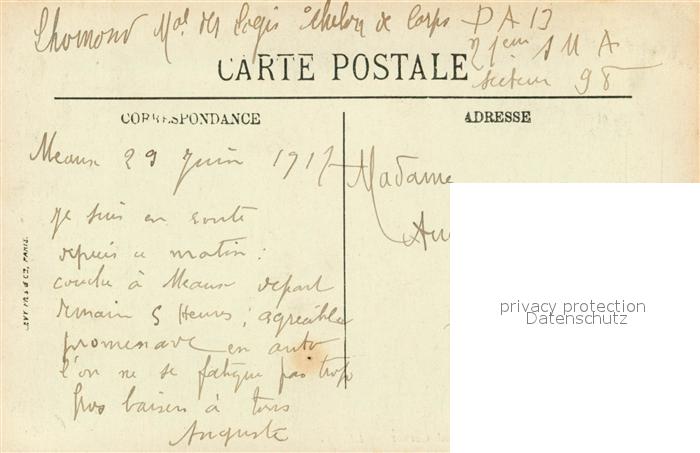 Lhomond Mal des Logis Echelon de Corps P A 13
S M A
secteur 98
CARTE POSTALE
CORRESPONDANCE
ADRESSE
Meaux 29 Juin 1917
Madame
Au
je suis en route
depuis ce matin :
couche à Meaux départ
demain 5 Heures ; agréable
promenade en auto
l'on ne se fatigue pas trop
Gros baisers à tous
Auguste
LEVY FILS & CO, PARIS.
privacy protection
Datenschutz